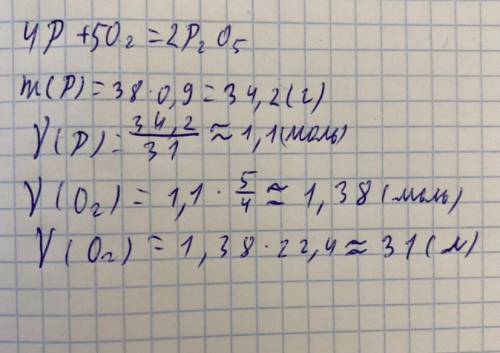 4P + 5O₂ = 2P₂O₅
m(P) = 38·0,9 = 34,2(г)
γ(P) = 34,2/31 ≈ 1,1(моль)
γ(O₂) = 1,1 · 5/4 ≈ 1,38(моль)
γ(O₂) = 1,38·22,4 ≈ 31(л)